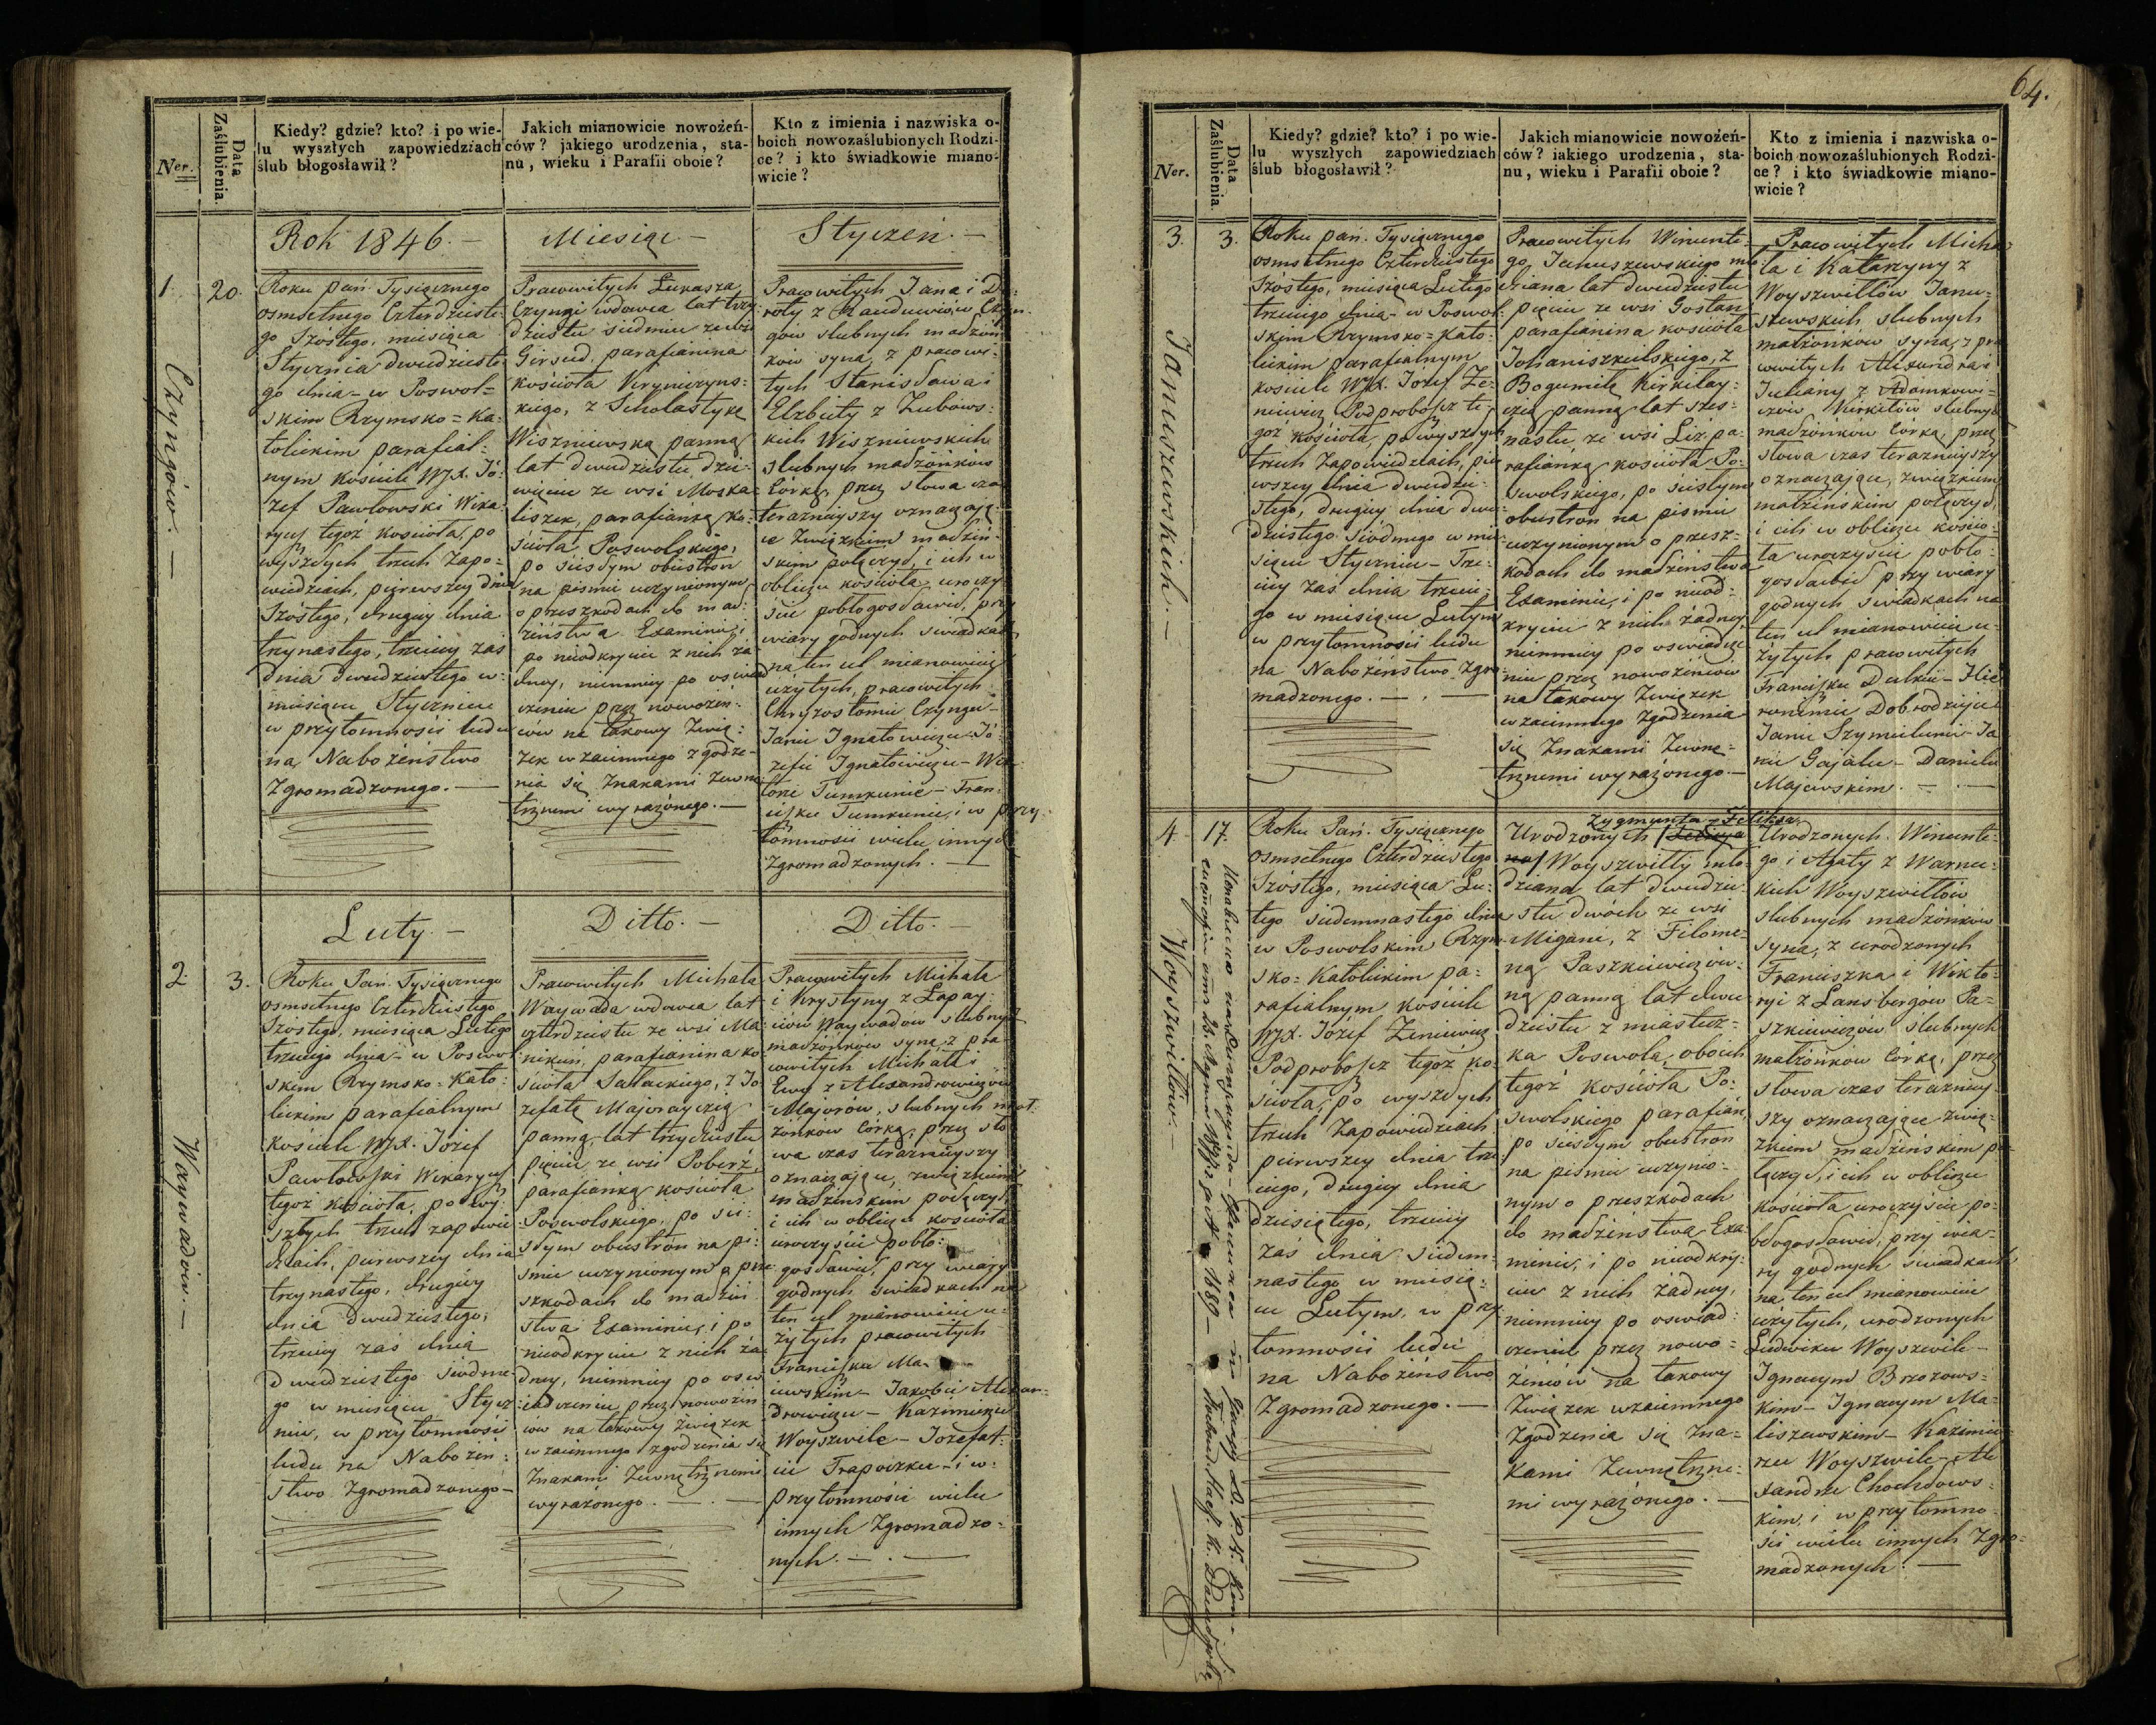 Ner.
Data
Zaślubienia.
Kiedy? gdzie? kto? i po wie-
lu wyszłych zapowiedziach
ślub błogosławił?
Jakich mianowicie nowożeń-
ców? jakiego urodzenia, sta-
nu, wieku i Parafii oboie?
Kto z imienia i nazwiska o-
boich nowozaślubionych Rodzi-
ce? i kto świadkowie miano-
wicie?
Rok 1846. —
Miesiąc —
Styczeń. —
1.
20.
Czyngów. —
Roku Pań. Tysiącznego
osmsetnego Czterdzieste-
go Szóstego, miesiąca
Stycznia dwudzieste
go dnia - w Poswol=
skim Rzymsko = Ka-
tolickim parafial-
nym kościele WJX. Jó-
zef Pawłowski Wika-
ryusz tegoż kościoła, po
wyszłych trzech Zapo=
wiedziach, pierwszey dnia
Szóstego, drugiey dnia
trzynastego, trzeciey zaś
dnia dwudziestego w
miesiącu Styczniu
w przytomności ludu
na Nabożeństwo
Zgromadzonego. —
Pracowitych Łukasza
Czyngi wdowca lat trzy-
dziestu siedmiu ze wsi
Girsud, parafianina
kościoła
kiego, z Scholastyką
Wiszniewską panną
lat dwudziestu dzie-
więciu ze wsi Moska-
liszek, parafianką ko-
ścioła Poswolskiego,
po ścisłym obustron
na piśmie uczynionym
o przeszkodach do mał-
żeństwa Examinie, i
po nieodkryciu z nich ża
dney, niemniey po oświad
czeniu przez nowożeń-
ców na takowy Zwią-
zek wzaiemnego zgodze-
nia się Znakami zewnę
trznemi wyrażonego. —
Pracowitych Jana i Do
roty z Czyn-
gów ślubnych małżon-
ków syna, z pracowi-
tych Stanisława i
Elżbiety z Zubows-
kich Wiszniewskich
ślubnych małżonków
Córką, przez słowa cza
teraznieyszy oznaczają-
ce Związkiem małżeń-
skim połączył, i ich w
obliczu kościoła uroczy
ście pobłogosławił, przy
wiary godnych świadkach
na ten cel mianowicie
użytych, pracowitych
Chryzostomie Czyngu -
Janie Ignatowiczu - Jó-
zefie Ignatowiczu - Wik-
torze Tumkunie - Fran-
ciszku Tumkunie, i w przy-
tomności wielu innych
Zgromadzonych. —
Luty. —
Ditto. —
Ditto. —
2.
3.
Waywadów. —
Roku Pań. Tysiącznego
osmsetnego Czterdziestego
Szóstego, miesiąca Lutego
trzeciego dnia - w Poswol
skim Rzymsko = Kato-
lickim parafialnym
kościele WJX. Józef
Pawłowski Wikaryusz
tegoż kościoła, po wy-
szłych trzech zapowie-
dziach, pierwszey dnia
trzynastego, drugiey
dnia dwudziestego,
trzeciey zaś dnia
dwudziestego siódme-
go w miesiącu Stycz
niu, w przytomności
ludu na Nabożeń-
stwo Zgromadzonego —
Pracowitych Michała
Waywada wdowca lat
czterdziestu ze wsi Ma-
nikun, parafianina ko
ścioła Sałackiego, z Jo
zefatą Majorayczią
panną lat trzydziestu
pięciu, ze wsi Poberż,
parafianką kościoła
Poswolskiego, po ści-
słym obustron na pi-
śmie uczynionym o prze
szkodach do małżeń
stwa Examinie, i po
nieodkryciu z nich ża
dney, niemniey po ośw
iadczeniu przez nowożeń
ców na takowy Związek
wzaiemnego zgodzenia się
Znakami Zewnętrznemi
wyrażonego. —
Pracowitych Michała
i Krystyny z Łapay
ciów Waywadów ślubnych
małżonków syna, z pra
cowitych Michała i
Ewy z Alexandrowiczów
Majorów, ślubnych małż
żonków Córką, przez sło
wa czas teraznieyszy
oznaczające, związkiem
małżeńskim połączył,
i ich w obliczu kościoła
uroczyście pobło-
gosławił, przy wiary
godnych świadkach na
ten cel mianowicie u-
żytych pracowitych
Franciszku
Jakobie Alexan-
drowiczu - Kazimierzu
Woyszwile - Jozefat-
cie Trapoczku - i w
przytomności wielu
innych Zgromadzo-
nych. —
64.
Ner.
Data
Zaślubienia.
Kiedy? gdzie? kto? i po wie-
lu wyszłych zapowiedziach
ślub błogosławił?
Jakich mianowicie nowożeń-
ców? iakiego urodzenia, sta-
nu, wieku i Parafii oboie?
Kto z imienia i nazwiska o-
boich nowozaślubionych Rodzi-
ce? i kto świadkowie miano-
wicie?
3.
3.
Januszewskich. —
Roku pań. Tysiącznego
osmsetnego Czterdziestego
Szóstego, miesiąca Lutego
trzeciego dnia - w Poswol-
skim Rzymsko = Kato-
lickim parafialnym
kościele WJX. Jozef Że-
niewicz Podproboszcz te-
goż kościoła, po wyszłych
trzech Zapowiedziach, pie
rwszey dnia dwudzie-
stego, drugiey dnia dwu-
dziestego siódmego w mie
siącu Styczniu - Trze-
ciey zaś dnia trzecie-
go w miesiącu Lutym
w przytomności ludu
na Nabożeństwo zgro
madzonego. —
Pracowitych Wincente-
go Januszewskiego mło-
dziana lat dwudziestu
pięciu ze wsi Gostan
parafianina kościoła
Johaniszkielskiego, z
Bogumiłą Kirkiłay-
czią panną lat szes-
nastu, ze wsi Liz, pa-
rafianką kościoła Po-
swolskiego, po ścisłym
obustron na piśmie
uczynionym o przesz-
kodach do małżeństwa
Examinie, i po nieod-
kryciu z nich żadney,
niemniey po oświadcze
niu przez nowożeńców
na takowy Związek
wzaiemnego zgodzenia
się Znakami Zewnę-
trznemi wyrażonego. —
Pracowitych Micha-
ła i Katarzyny z
Woyszwiłłów Janu-
szewskich ślubnych
małżonków syna, z pra
cowitych Alexandra i
Julianny z Adamkowi-
czów Kirkiłów ślubnych
małżonków Córką, przez
słowa czas teraznieyszy
oznaczające, związkiem
małżeńskim połączył,
i ich w obliczu kościo-
ła uroczyście pobło-
gosławił przy wiary
godnych świadkach na
ten cel mianowicie u-
żytych pracowitych
Franciszku Dulkie - Hie
ronimie Dobrodzieju
Janie Szymulunie - Ja
nie Gajalu - Danielu
Majewskim. —
4.
17.
Woyszwiłłów. —
Roku Pań. Tysiącznego
osmsetnego Czterdziestego
Szóstego, miesiąca Lu-
tego siedemnastego dnia
w Poswolskim Rzym-
sko = Katolickim pa-
rafialnym kościele
WJX. Józef Żeniewicz
Podproboszcz tegoż ko-
ścioła, po wyszłych
trzech Zapowiedziach
pierwszey dnia trze-
ciego, drugiey dnia
dziesiątego, trzeciey
zaś dnia siedem-
nastego w miesią-
cu Lutym, w przy
tomności ludu
na Nabożeństwo
Zgromadzonego. —
Zygmunta - Feliksa
Urodzonych
Woyszwiłły mło-
dziana lat dwudzie-
stu dwóch ze wsi
Migani, z Filome-
ną Paszkiewiczów-
ną panną lat dwu
dziestu z miastecz-
ka Poswola, oboich
tegoż kościoła Po-
swolskiego parafian,
po ścisłym obustron
na piśmie uczynio-
nym o przeszkodach
do małżeństwa Exa-
minie, i po nieodkry-
ciu z nich żadney,
niemniey po oświad-
czeniu przez nowo-
żeńców na takowy
Związek wzaiemnego
Zgodzenia się Zna-
kami Zewnętrzne-
mi wyrażonego. —
Urodzonych Wincente-
go i Agaty z Warnec-
kich Woyszwiłłów
ślubnych małżonków
syna, z urodzonych
Franciszka i Wikto-
ryi z Lansbergów Pa-
szkiewiczów ślubnych
małżonków Córką, przez
słowa czas terazniey-
szy oznaczające zwią-
zkiem małżeńskim po-
łączył, i ich w obliczu
kościoła uroczyście po-
błogosławił, przy wia-
ry godnych świadkach
na ten cel mianowicie
użytych, urodzonych
Ludwiku Woyszwile -
Ignacym Brzozows-
kim - Ignacym Ma-
liszewskim - Kazimie-
rzu Woyszwile - Ale
xandrze Chochłows-
kim, i w przytomno-
ści wielu innych Zgro-
madzonych. —